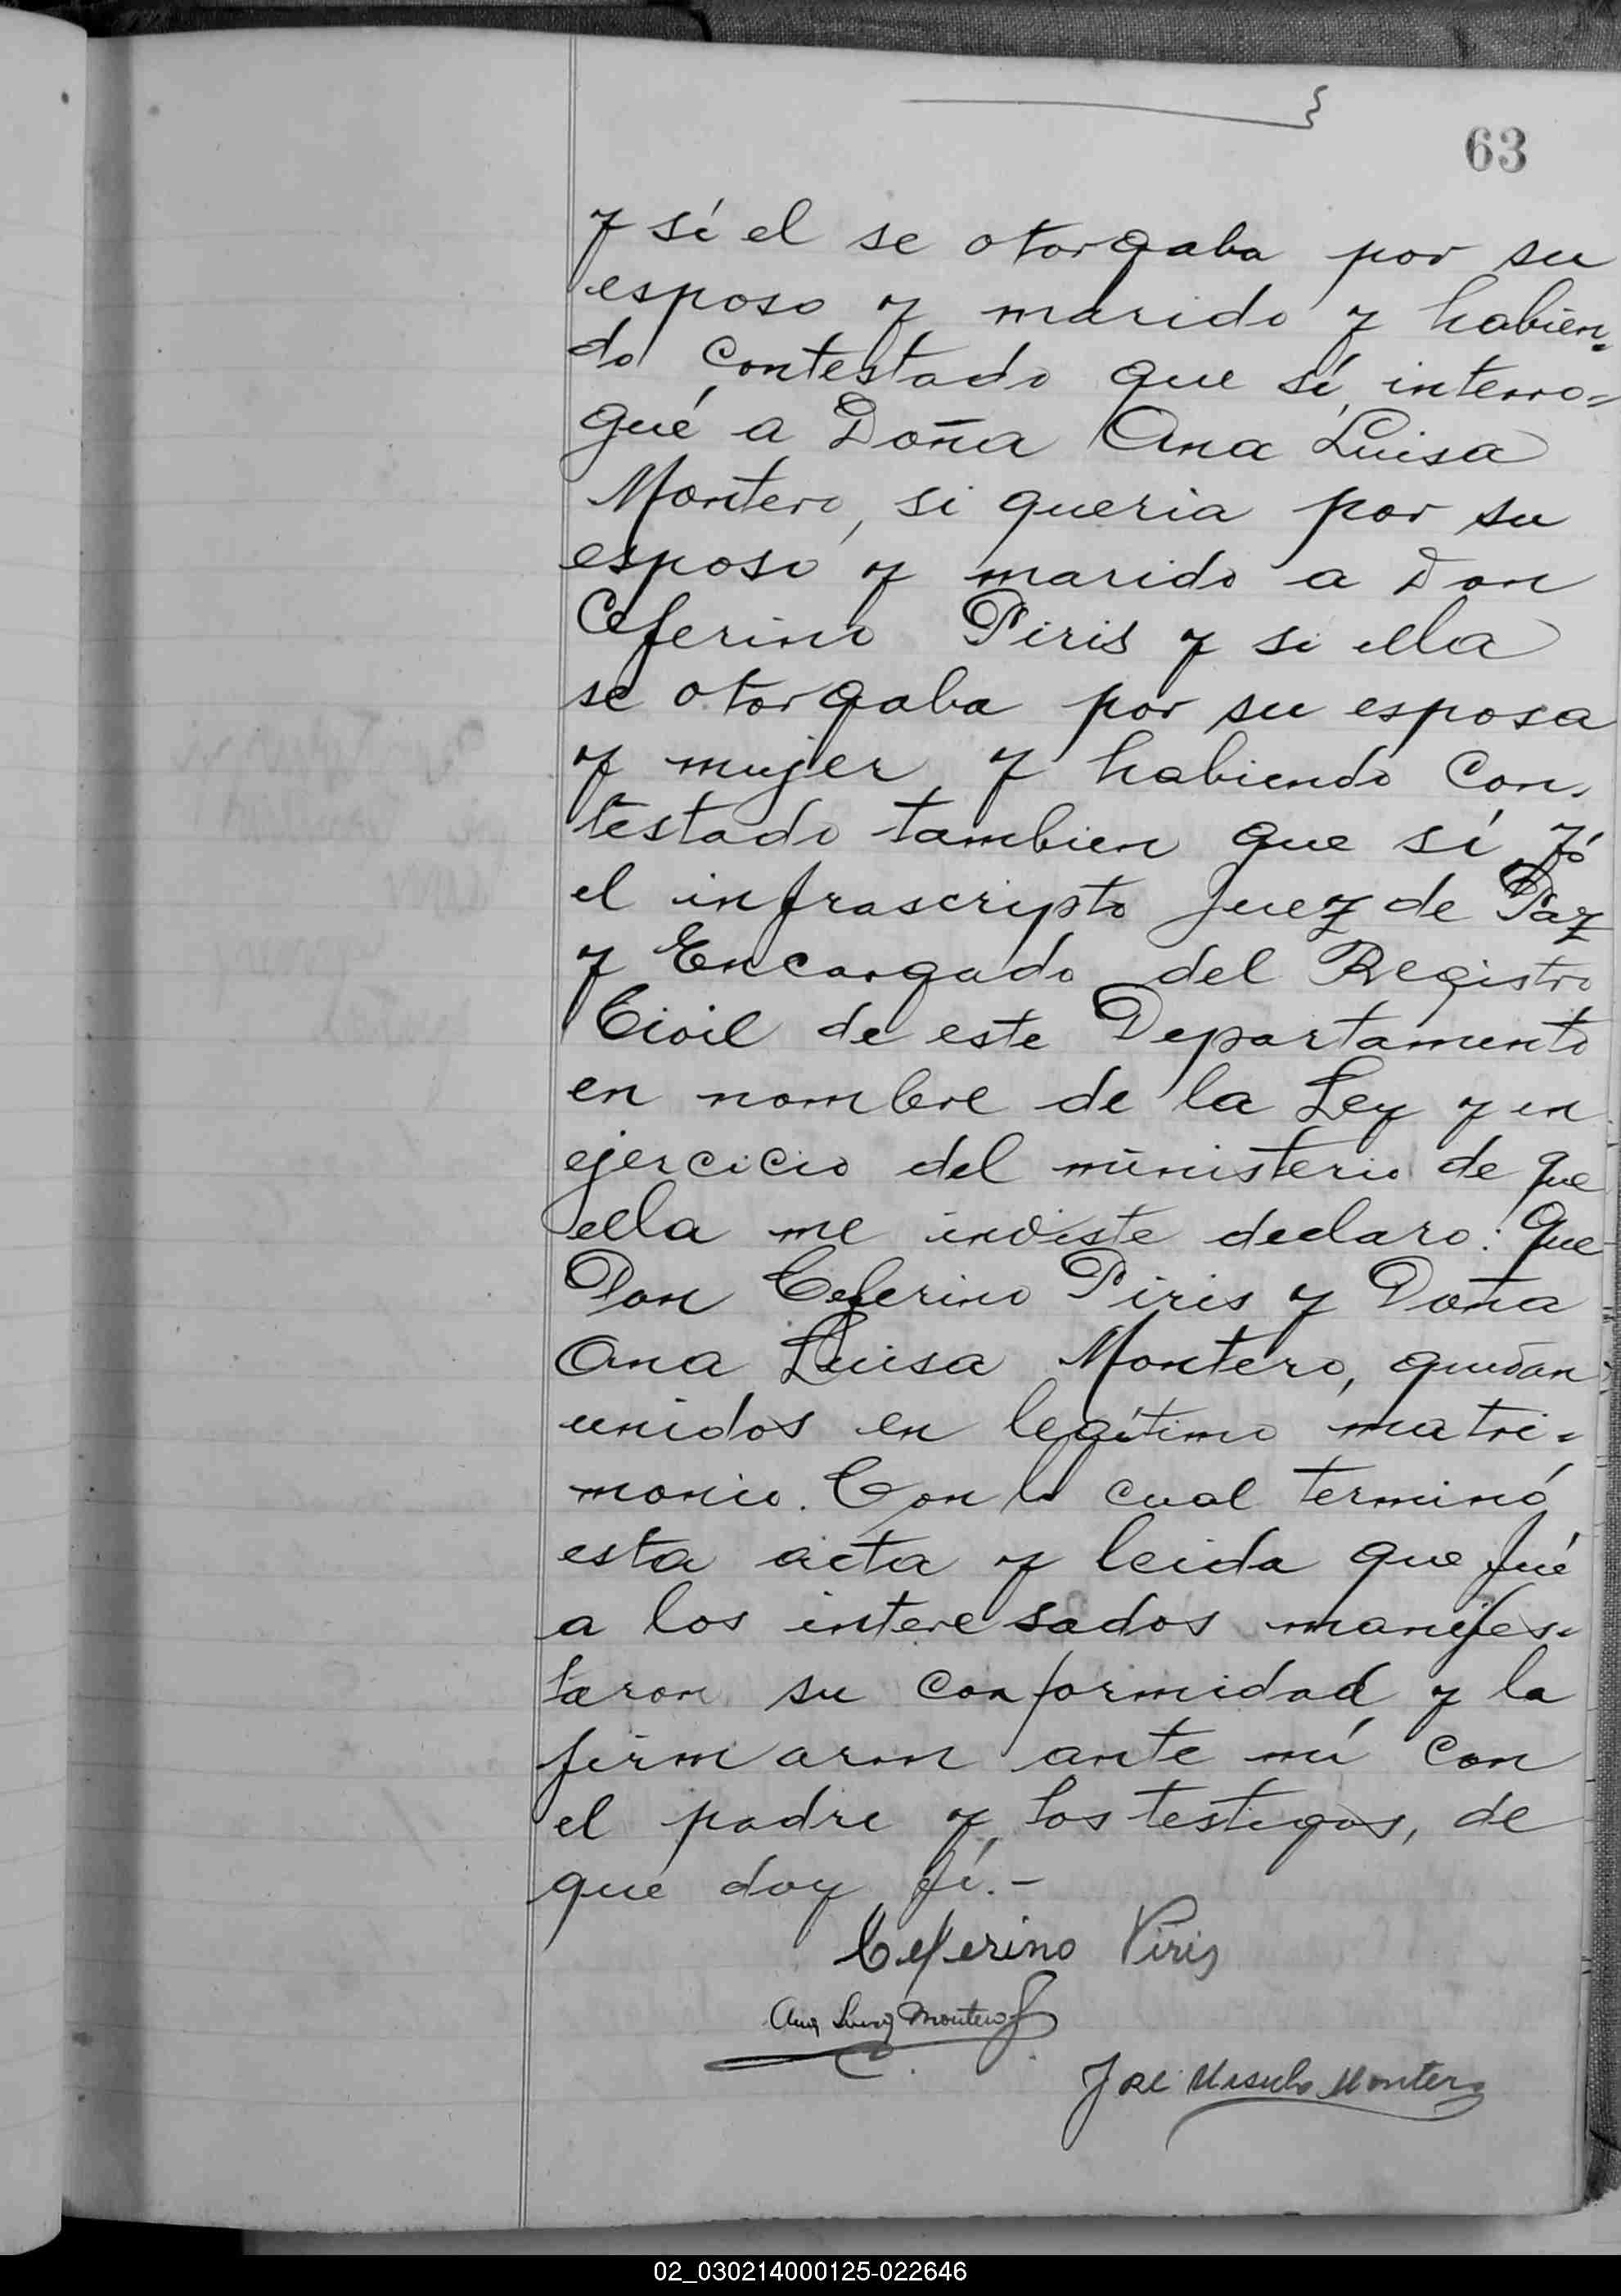 63
y sí el se otorgaba por su
esposo y marido y habien=
do contestado que sí, interro=
gué a Doña Ana Luisa
Montero, si queria por su
esposo y marido a Don
Ceferino Piris y si ella
se otorgaba por su esposa
y mujer y habiendo con-
testado tambien que sí, Yó
el infrascripto Juez de Paz
y Encargado del Registro
Civil de este Departamento
en nombre de la Ley y en
ejercicio del ministerio de que
ella me inviste declaro: Que
Don Ceferino Piris y Doña
Ana Luisa Montero, quedan
unidos en legítimo matri=
monio. Con lo cual terminó
esta acta y leida que fué
a los interesados manifes-
taron su conformidad y la
firmaron ante mí con
el padre y los testigos, de
que doy fé.-
Ceferino Piris
Ana Luisa Montero
José Montero
02_030214000125-022646